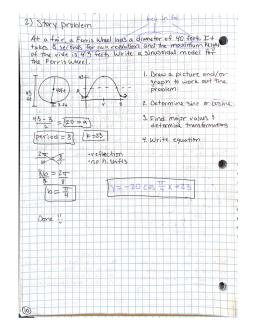 2) Story problem
key info
At a fair, a Ferris wheel has a diameter of 40 feet. It
takes 8 seconds for one revolution and the maximum height
of the ride is 43 feet. Write a sinusoidal model for
the Ferris wheel.
1. Draw a picture and/or
graph to work out the
problem.
2. Determine sine or cosine
3. Find major values &
determine transformations
4. Write equation
43 - 3
2
= 20 = a
period = 8
k = 23
2π
-reflection
-no h. shifts
8b = 2π
8 8
b = π/4
y = -20 cos π/4 x + 23
Done !!